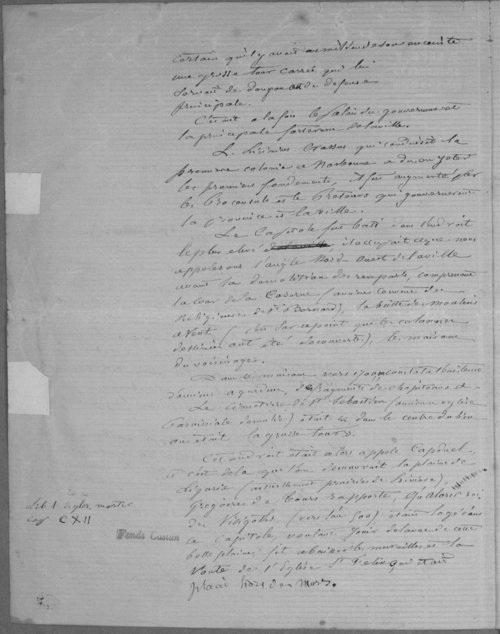 certain qu'il y avait au milieu de son enceinte
une grosse tour carrée qui lui
servait de donjon et de défense
principale.
C'était à la fois le Palais du gouverneur et
la principale forteresse de la ville.
L. Licinius Crassus qui conduisit la
première colonie à Narbonne a dû en jeter
les premiers fondements, il fut augmenté par
les Proconsuls et les Préteurs qui gouvernèrent
la province et la ville.
Le Capitole fut bâti dans l'endroit
le plus élevé de la ville, il occupait ce que nous
appelons l'angle Nord-Ouest de la ville
avant la démolition des remparts, comprenant
la cour de la Caserne (ancien couvent des
Religieuses de St Bernard), la butte des Moulins
à Vent (c'est sur ce point que les colonnes
ont été découvertes), les maisons
du voisinage.
Dans maisons vers 1700 on constata l'existence
d'un aqueduc, de fragments de chapiteaux &
Le cimetière de St Sebastien (ancienne église
Paroissiale démolie) était dans le centre du lieu
où était la grosse tour.
Cet endroit était alors appelé Capduel
c'est de là que l'on découvrait la plaine de
Liguria (actuellement plaine de Livière),
Grégoire de Tours rapporte, qu'Alaric roi
des Visigoths (vers l'an 500) étant logé dans
ce Capitole, voulant jouir de la vue de cette
belle plaine fit rabaisser les murailles et la
voute de l'Eglise St Felix qui était
placée hors des murs.
Lib. 1 de glor. mart.
Cap CXII
Fonds Custan